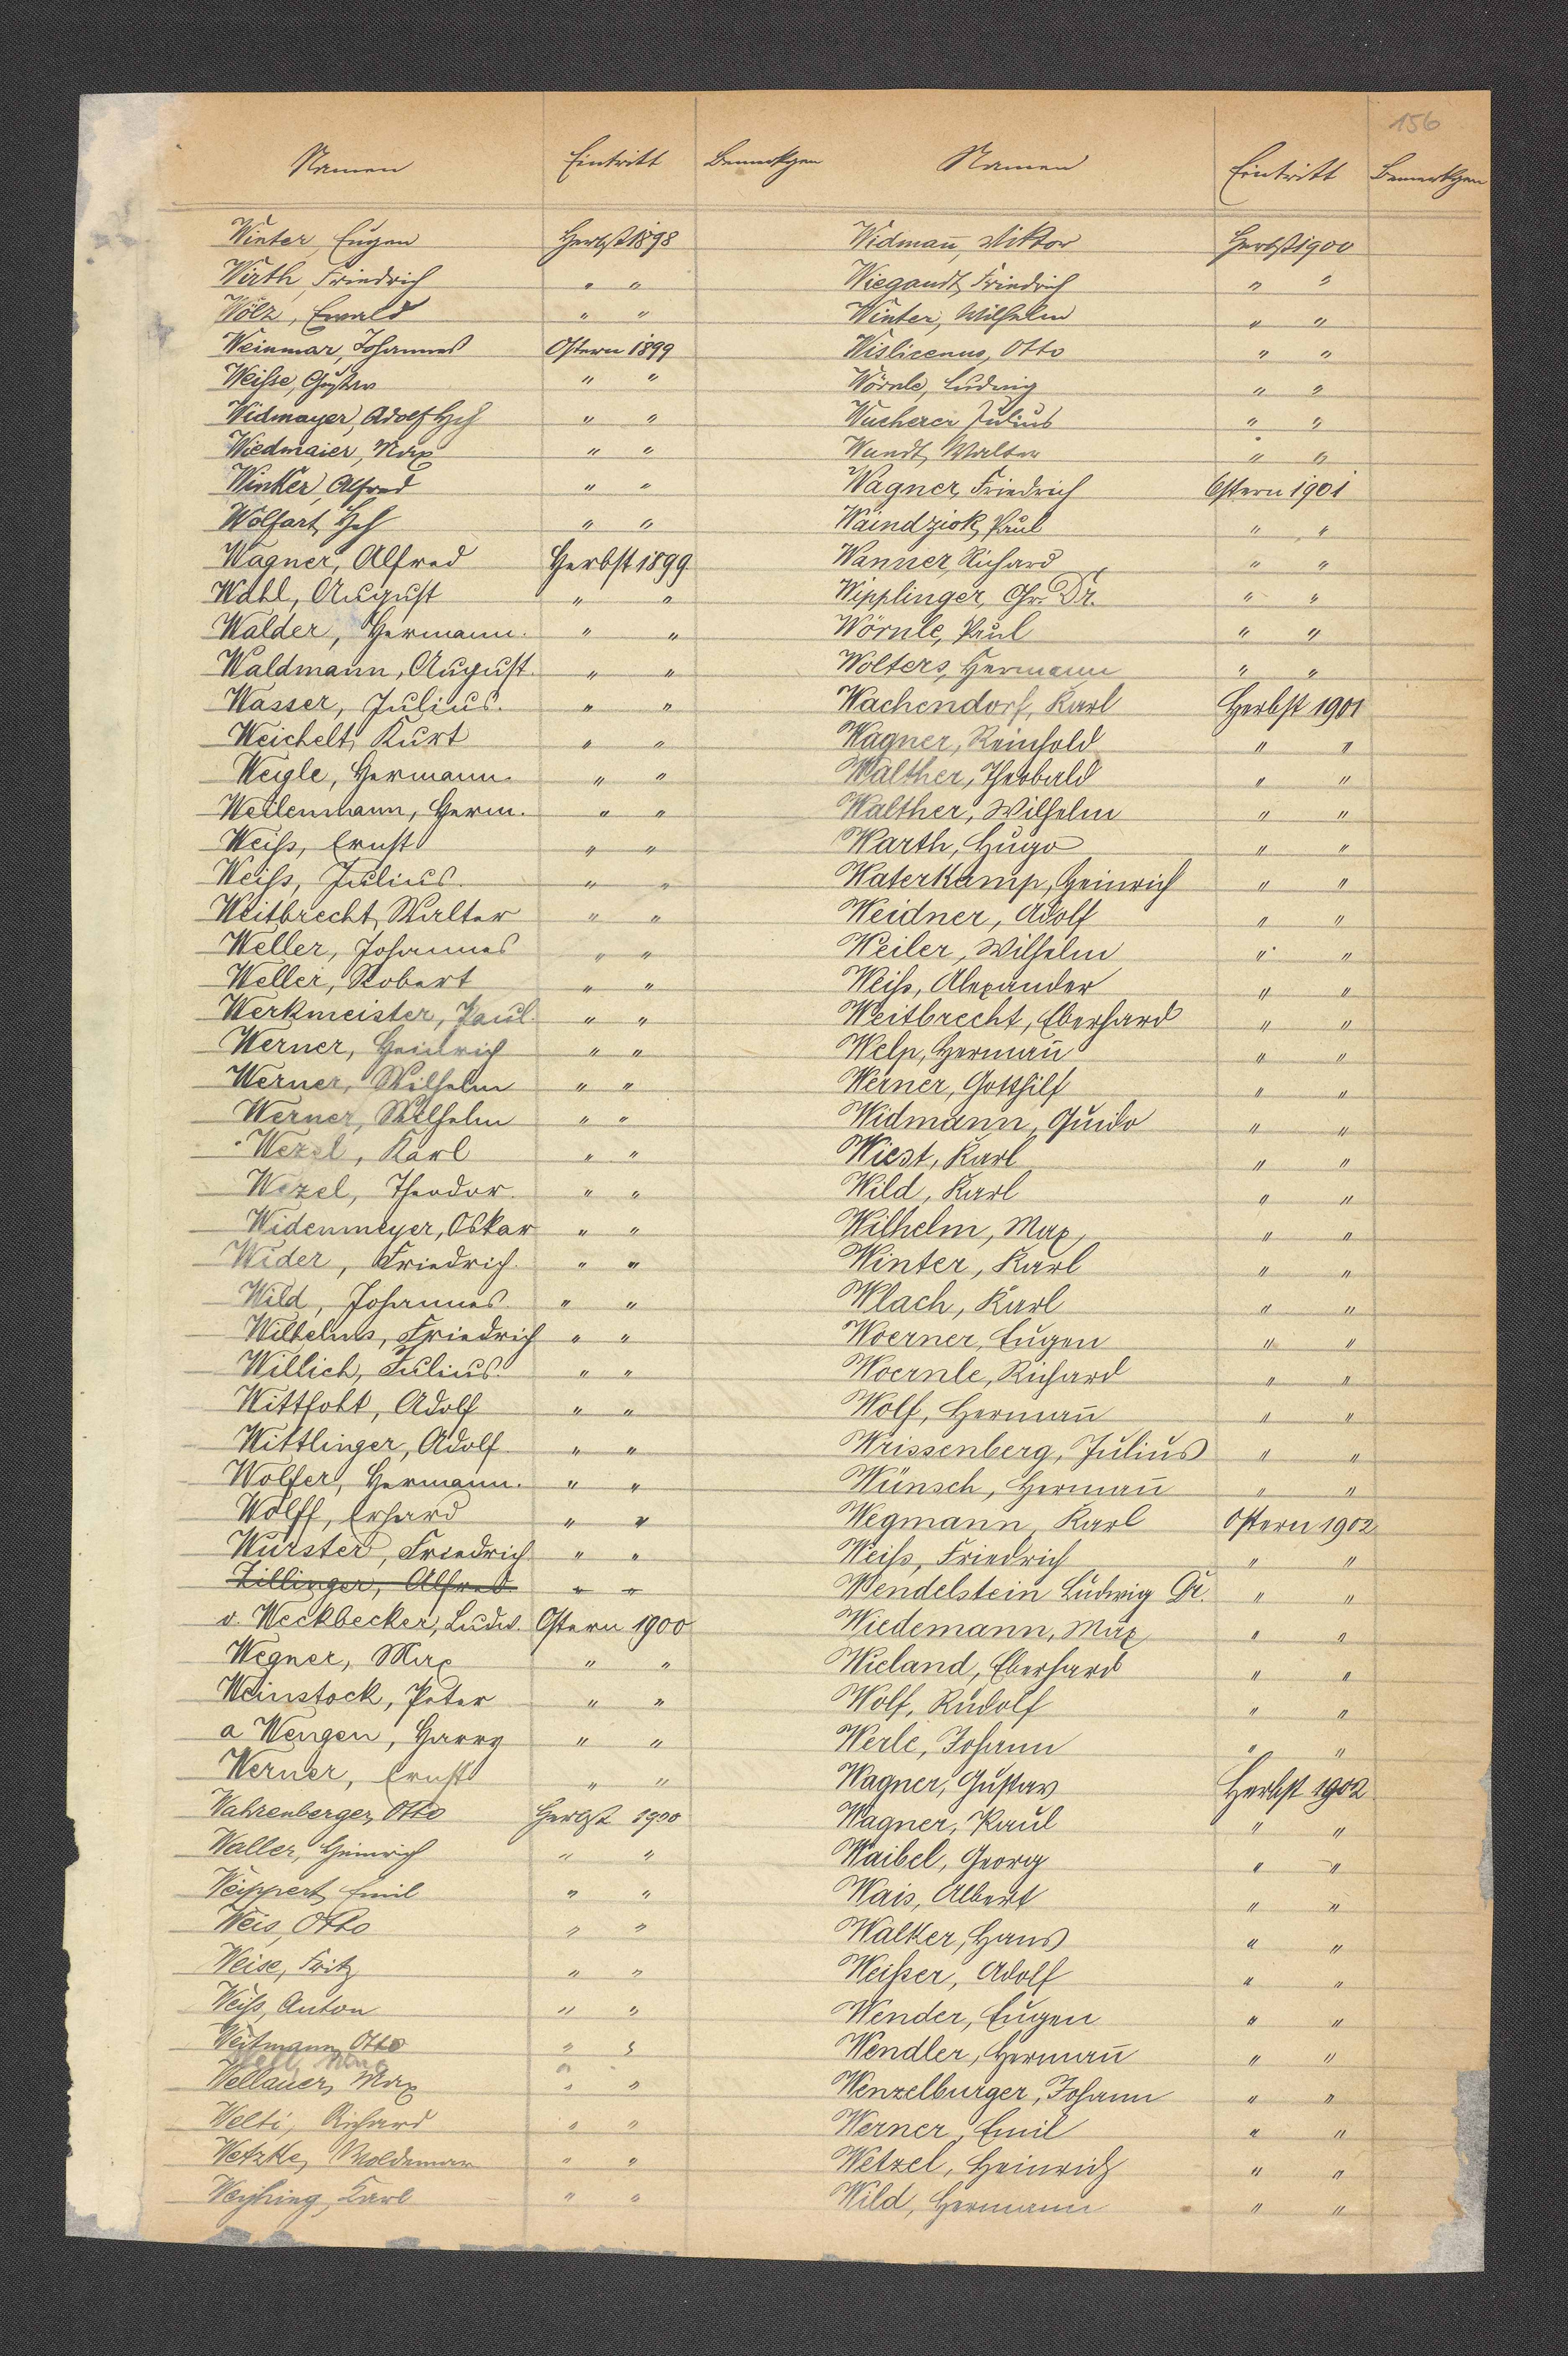 156
Namen Eintritt Bemerkgen
Winter, Eugen Herbst 1898
Wirth, Friedrich " "
Wölz, Ewald " "
Weinmar, Johannes Ostern 1899
Weisse, Gustav " "
Widmayer, Adolf Hch " "
Wiedmaier, Max " "
Winker, Alfred " "
Wolfart, Hch " "
Wagner, Alfred Herbst 1899
Wahl, August " "
Walder, Hermann. " "
Waldmann, August. " "
Wasser, Julius. " "
Weichelt, Kurt " "
Weigle, Hermann. " "
Weilenmann, Herm. " "
Weiss, Ernst " "
Weiss, Julius. " "
Weitbrecht, Walter " "
Weller, Johannes " "
Weller, Robert " "
Werkmeister, Paul. " "
Werner, Heinrich " "
Werner, Wilhelm " "
Werner, Wilhelm " "
Wezel, Karl " "
Wezel, Theodor. " "
Widenmeyer, Oskar " "
Wider, Friedrich. " "
Wild, Johannes. " "
Wilhelms, Friedrich " "
Willich, Julius. " "
Wittfoht, Adolf " "
Wittlinger, Adolf. " "
Wolfer, Hermann. " "
Wolff, Erhard " "
Wurster, Friedrich " "
Zillinger, Alfred " "
v. Weckbecker, Ludw. Ostern 1900
Wegner, Max " "
Weinstock, Peter " "
a Wengen, Harry " "
Werner, Ernst " "
Wahrenberger, Otto Herbst 1900
Waller, Heinrich " "
Weippert, Emil " "
Weis, Otto " "
Weise, Fritz " "
Weiss, Anton " "
Weitmann, Otto " "
Wellauer, Max " "
Welti, Richard " "
Wetzke, Woldemar " "
Weyhing, Karl " "
Namen Eintritt Bemerkgen
Widman̄, Viktor Herbst 1900
Wiegandt, Friedrich " "
Winter, Wilhelm " "
Wislicenus, Otto " "
Wörnle, Ludwig " "
Wucherer Julius " "
Wundt, Walter " "
Wagner, Friedrich Ostern 1901
Waindziok, Paul " "
Wanner, Richard " "
Wipplinger, Chr. Dr. " "
Wörnle, Paul " "
Wolters, Hermann " "
Wachendorf, Karl Herbst 1901
Wagner, Reinhold " "
Walther, Theobald " "
Walther, Wilhelm " "
Warth, Hugo " "
Waterkamp, Heinrich " "
Weidner, Adolf " "
Weiler, Wilhelm " "
Weiss, Alexander " "
Weitbrecht, Eberhard " "
Welp, Herman̄ " "
Werner, Gotthilf " "
Widmann, Guido " "
Wiest, Karl " "
Wild, Karl " "
Wilhelm, Max, " "
Winter, Karl " "
Wlach, Karl " "
Woerner, Eugen " "
Woernle, Richard " "
Wolf, Herman̄ " "
Wrissenberg, Julius " "
Wünsch, Herman̄ " "
Wegmann, Karl Ostern 1902
Weiss, Friedrich " "
Wendelstein Ludwig Dr. " "
Wiedemann, Max " "
Wieland, Eberhard " "
Wolf, Rudolf " "
Werle, Johann " "
Wagner, Gustav Herbst 1902
Wagner, Paul " "
Waibel, Georg " "
Wais, Albert " "
Walker, Hans " "
Weisser, Adolf " "
Wender, Eugen " "
Wendler, Herman̄ " "
Wenzelburger, Johann " "
Werner, Emil " "
Wetzel, Heinrich " "
Wild, Hermann " "